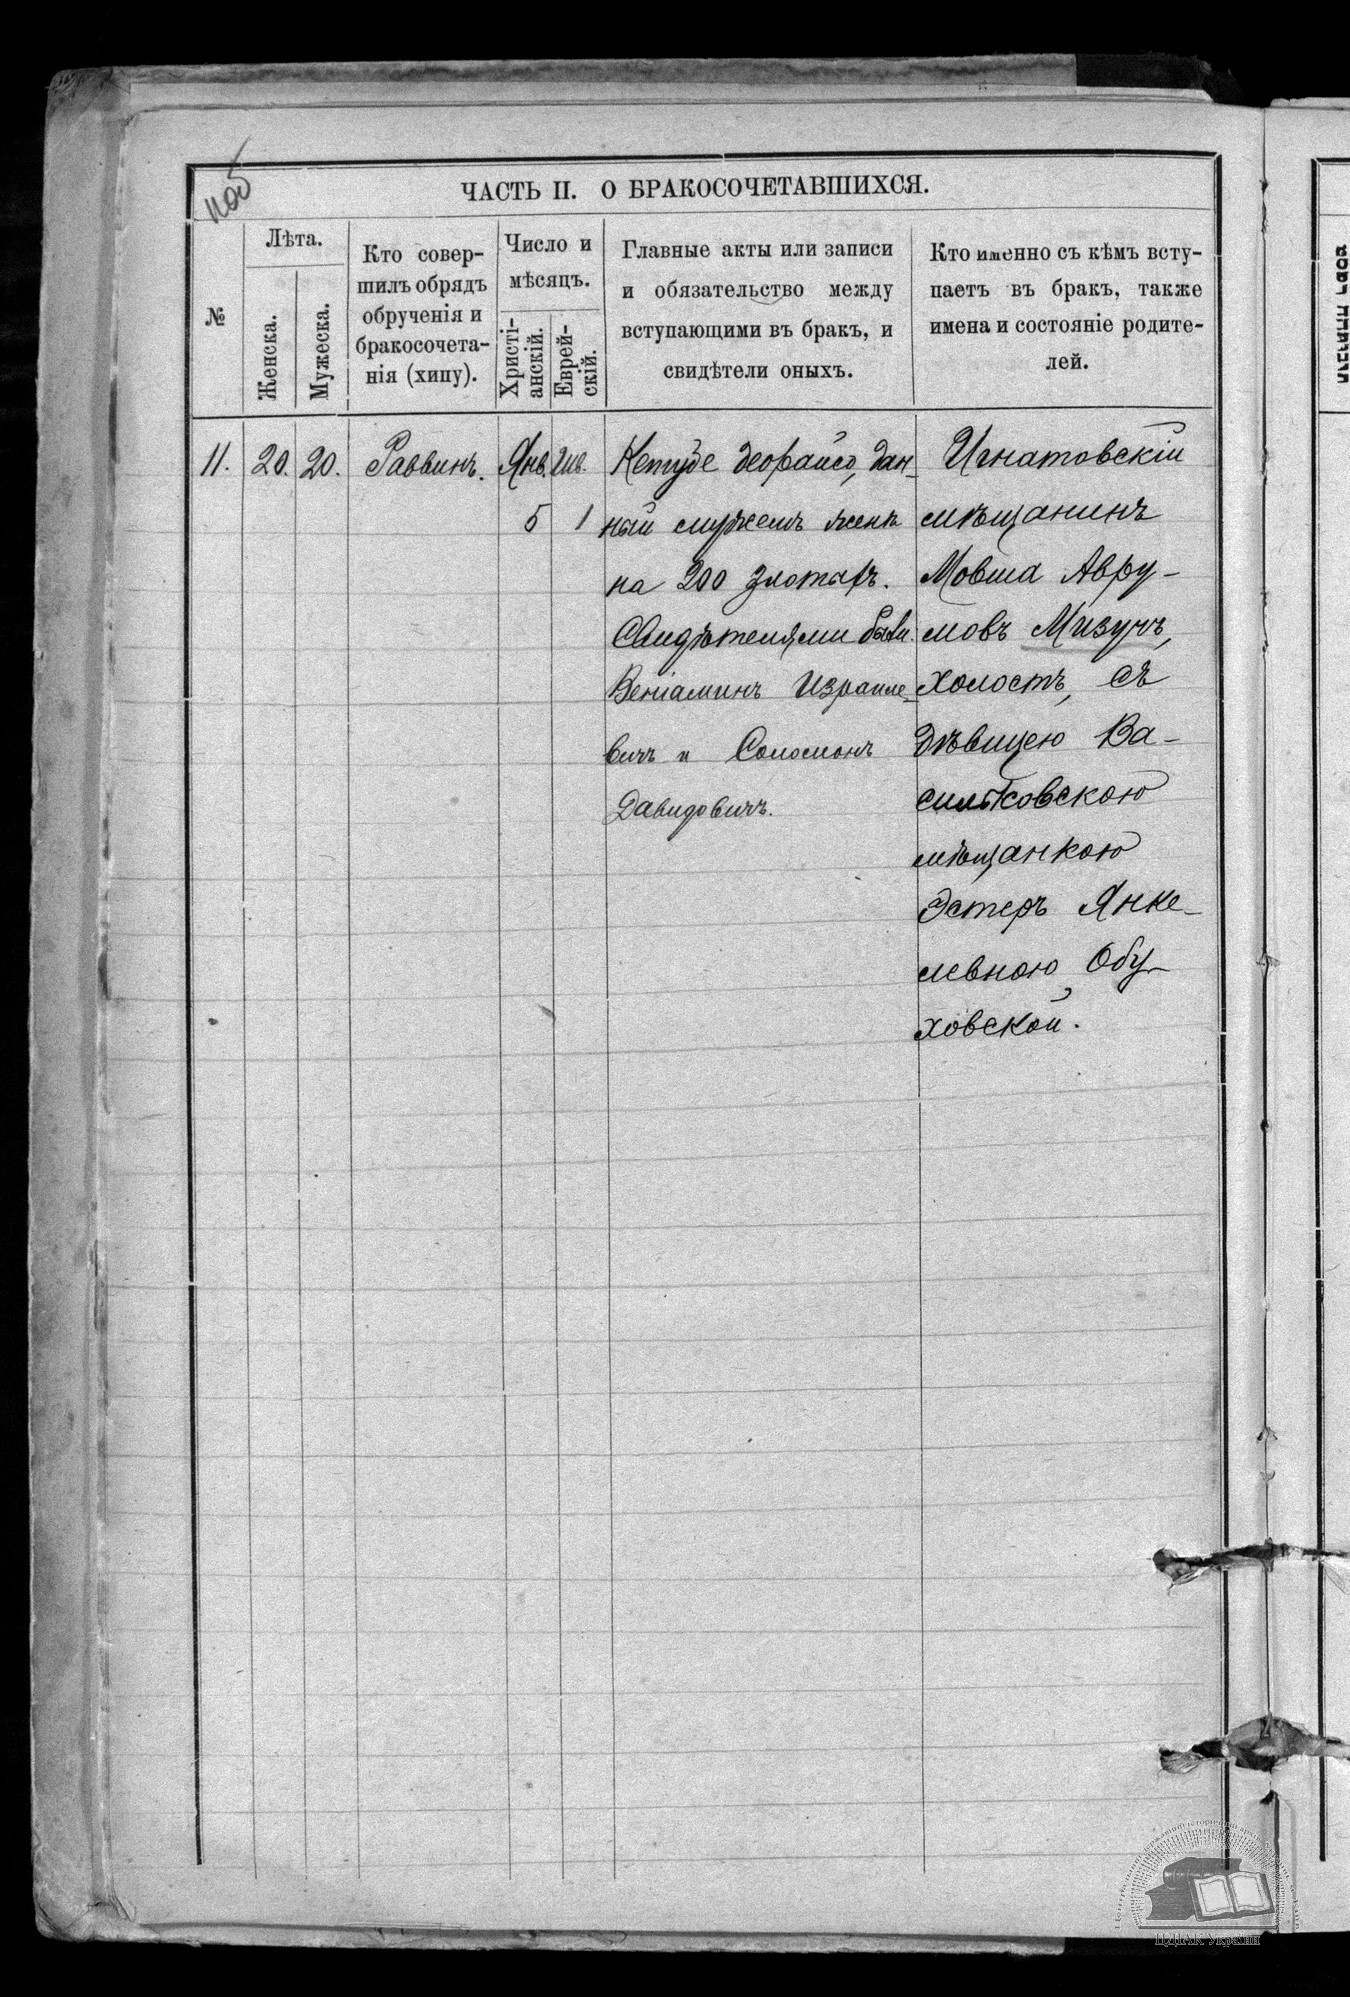 ЧАСТЬ II. О БРАКОСОЧЕТАВШИХСЯ.
№
Лѣта.
Женска.
Мужеска.
Кто совер-
шилъ обрядъ
обрученія и
бракосочета-
нія (хипу).
Число и
мѣсяцъ.
Христі-
анскій.
Еврей-
скій.
Главные акты или записи
и обязательство между
вступающими въ бракъ, и
свидѣтели оныхъ.
Кто именно съ кѣмъ всту-
паетъ въ бракъ, также
имена и состояніе родите-
лей.
11.
20.
20.
Раввинъ.
Янв.
5
Шв.
1
Кетубе деорайсо, дан-
ный мужемъ женѣ
на 200 злотыхъ.
Свидѣтелями были
Веніаминъ Израиле-
вичъ и Соломонъ
Давидовичъ.
Игнатовскій
мѣщанинъ
Мовша Авру-
мовъ Мизучъ,
холостъ, съ
дѣвицею Ва-
сильковскою
мѣщанкою
Эстеръ Янке-
левною Обу-
ховской.
ЦДІАК України